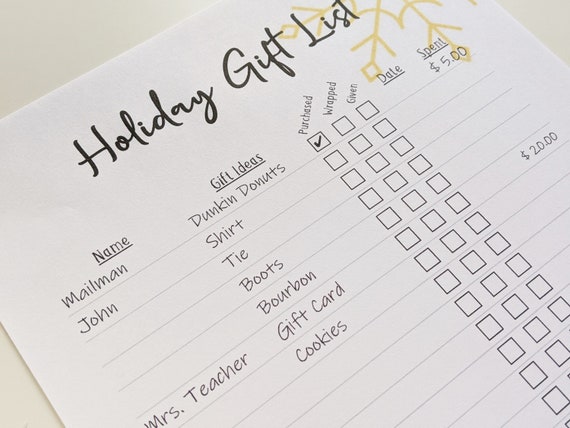 Holiday Gift List
Name Gift Ideas Purchased Wrapped Given Date Spent
Mailman Dunkin Donuts ✓ $ 5.00
John Shirt
Tie
Boots
Bourbon $ 20.00
Mrs. Teacher Gift Card
Cookies